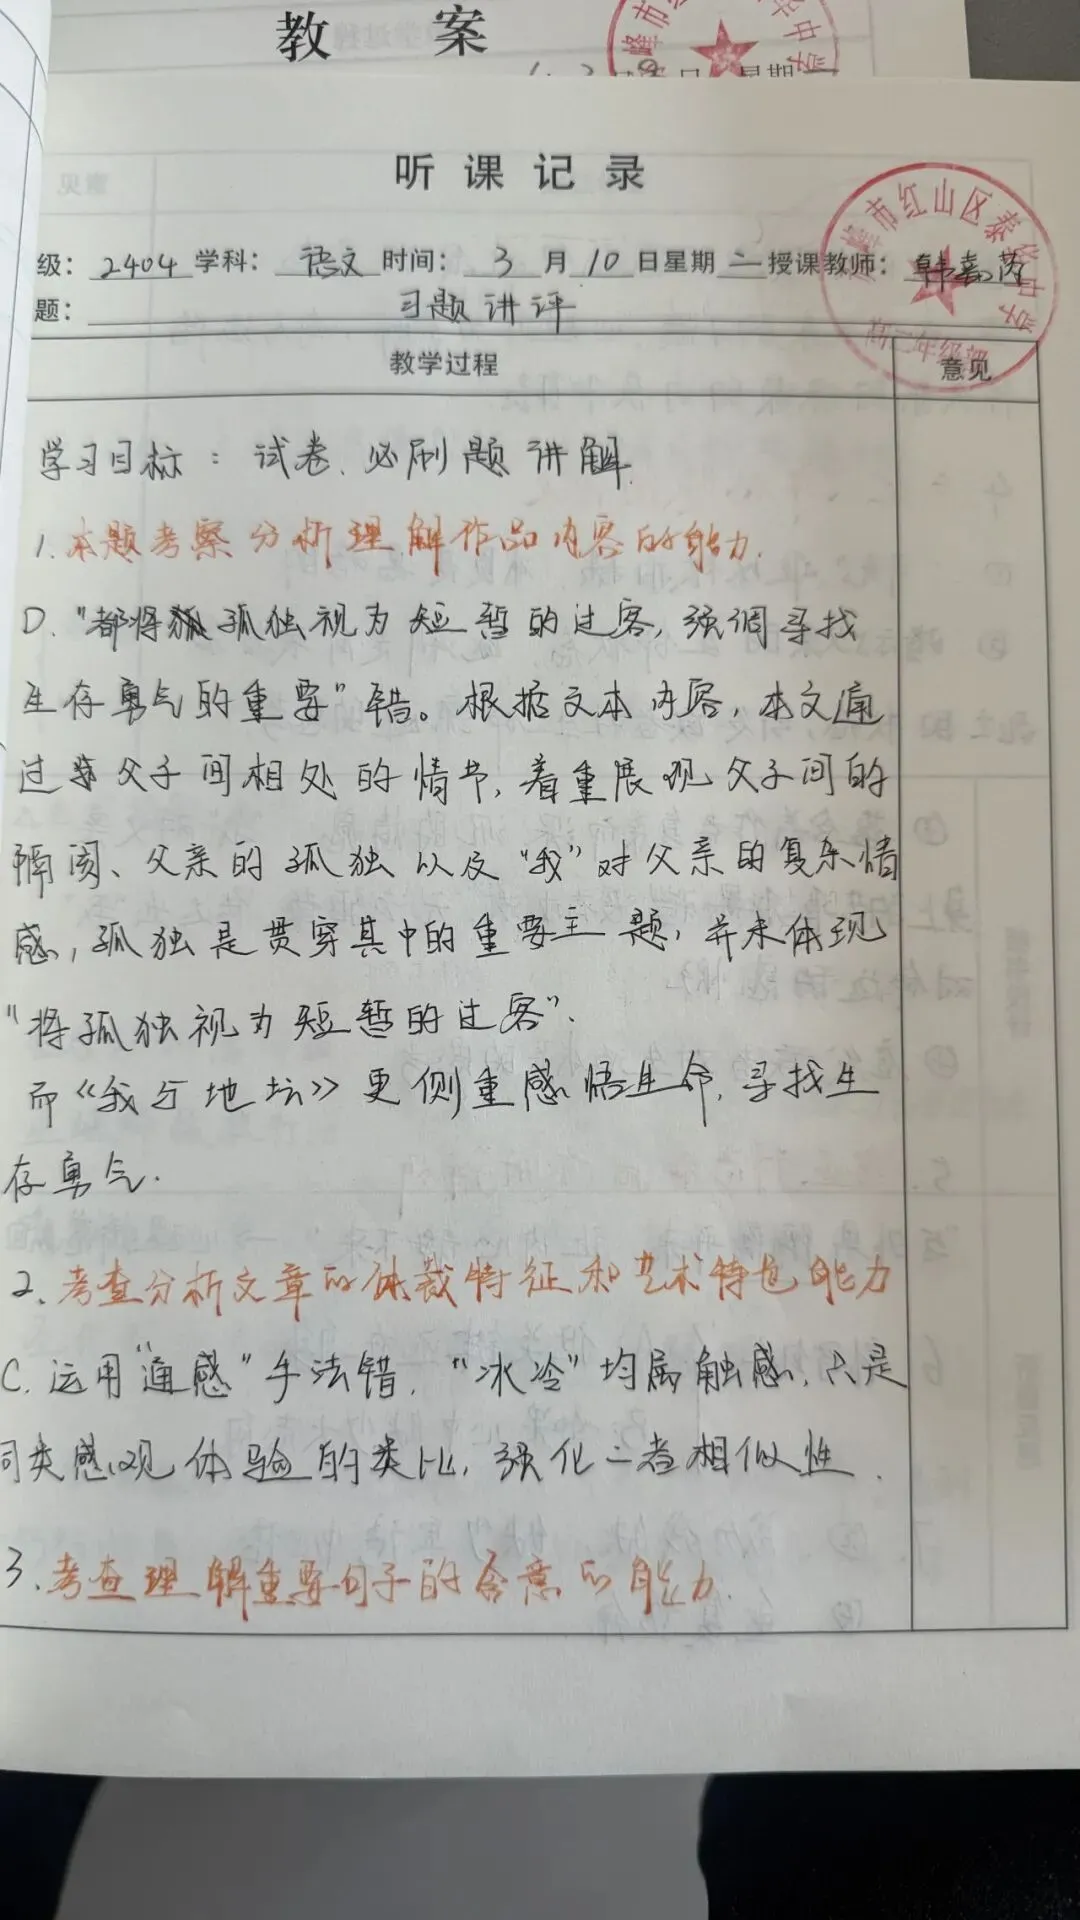 教 案
听 课 记 录
级： 2404 学科： 语文 时间： 3 月 10 日星期 二 授课教师： 韩嘉芮
题： 习题讲评
教学过程 意见
学习目标：试卷、必刷题讲解.
1. 本题考察分析理解作品内容的能力.
D. “都将孤独视为短暂的过客，强调寻找
生存勇气的重要”错。根据文本内容，本文通
过父子间相处的情节，着重展现父子间的
隔阂、父亲的孤独以及“我”对父亲的复杂情
感，孤独是贯穿其中的重要主题，并未体现
“将孤独视为短暂的过客”.
而《我与地坛》更侧重感悟生命，寻找生
存勇气.
2. 考查分析文章的体裁特征和艺术特色能力
C. 运用“通感”手法错. “冰冷”均属触感，只是
同类感观体验的类比，强化二者相似性.
3. 考查理解重要句子的含意的能力.
市红山区泰华中学